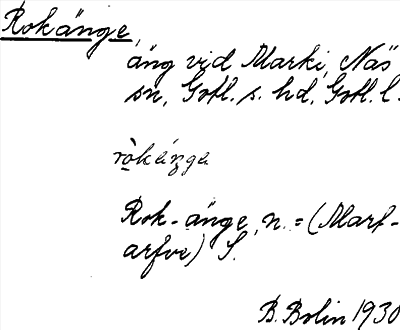 Rokänge,
äng vid Marki, Näs
sn, Gotl. s. hd, Gotl. l.
rò̱kéŋge
Rok-änge, n. = (Marf-
arfve) S.
B. Bolin 1930